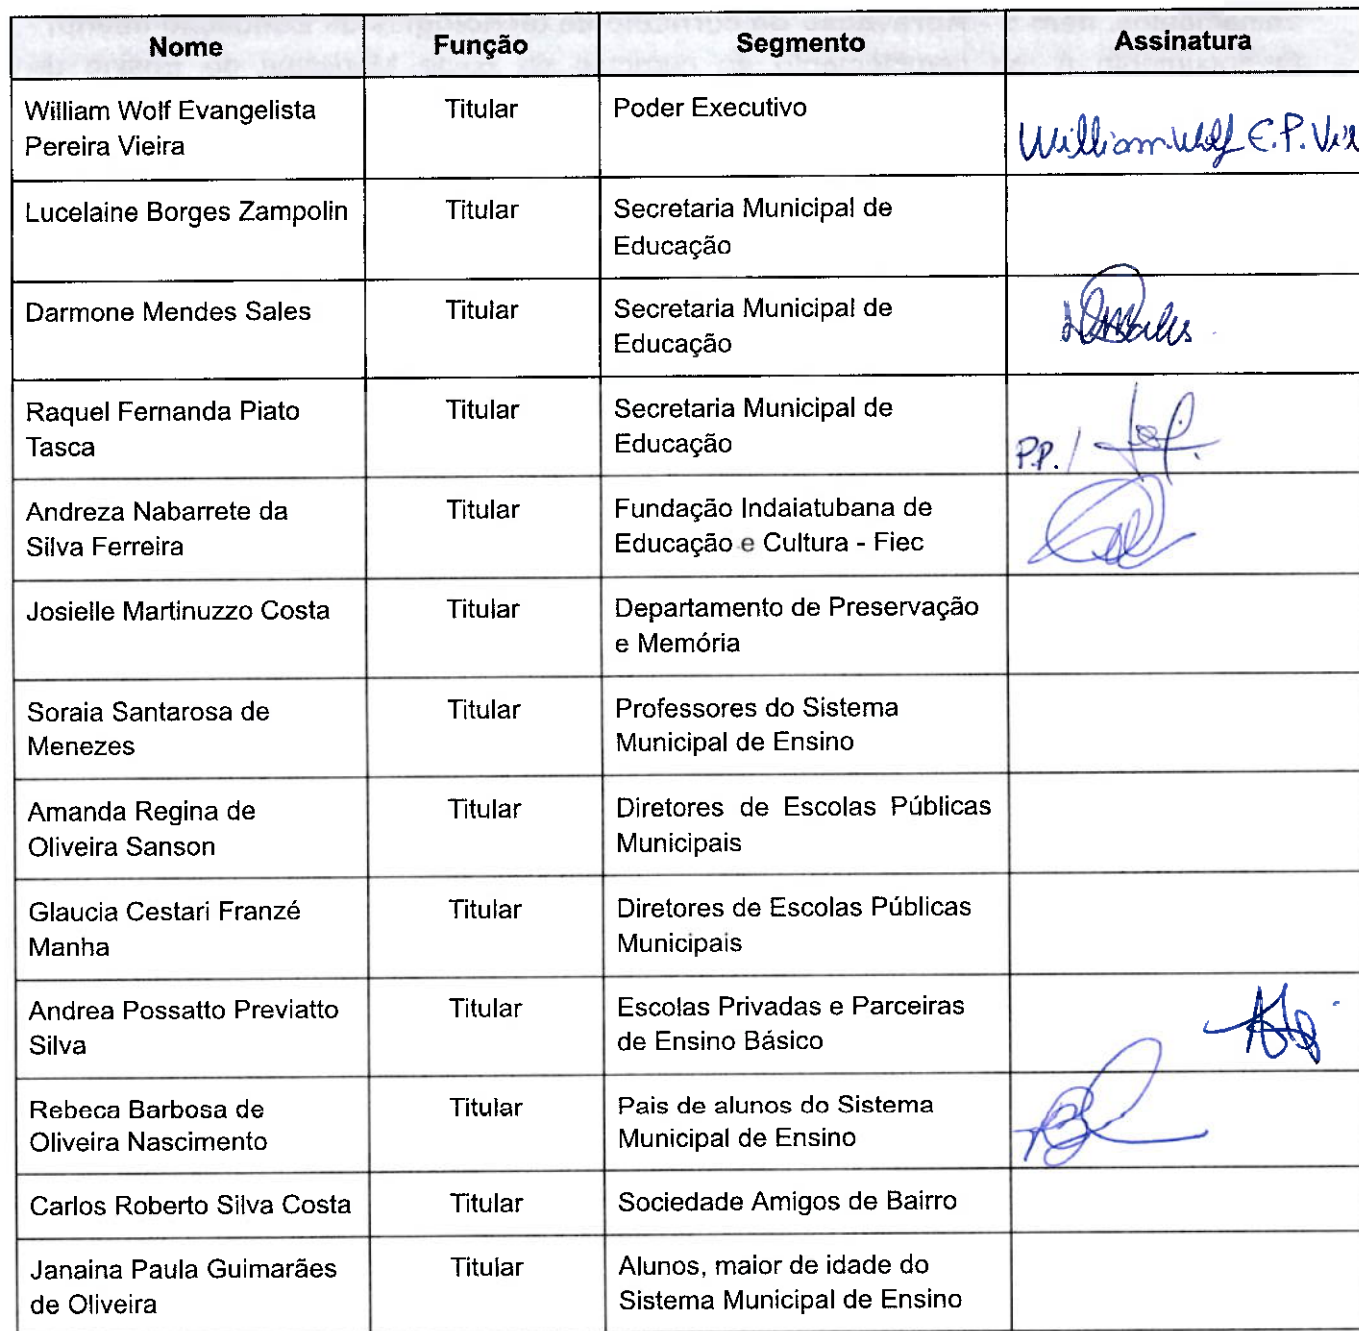 Nome Função Segmento Assinatura
William Wolf Evangelista Titular Poder Executivo
Pereira Vieira William Wolf E.P. Vie
Lucelaine Borges Zampolin Titular Secretaria Municipal de
Educação
Darmone Mendes Sales Titular Secretaria Municipal de
Educação
Raquel Fernanda Piato Titular Secretaria Municipal de
Tasca Educação P.P. /
Andreza Nabarrete da Titular Fundação Indaiatubana de
Silva Ferreira Educação e Cultura - Fiec
Josielle Martinuzzo Costa Titular Departamento de Preservação
e Memória
Soraia Santarosa de Titular Professores do Sistema
Menezes Municipal de Ensino
Amanda Regina de Titular Diretores de Escolas Públicas
Oliveira Sanson Municipais
Glaucia Cestari Franzé Titular Diretores de Escolas Públicas
Manha Municipais
Andrea Possatto Previatto Titular Escolas Privadas e Parceiras
Silva de Ensino Básico
Rebeca Barbosa de Titular Pais de alunos do Sistema
Oliveira Nascimento Municipal de Ensino
Carlos Roberto Silva Costa Titular Sociedade Amigos de Bairro
Janaina Paula Guimarães Titular Alunos, maior de idade do
de Oliveira Sistema Municipal de Ensino